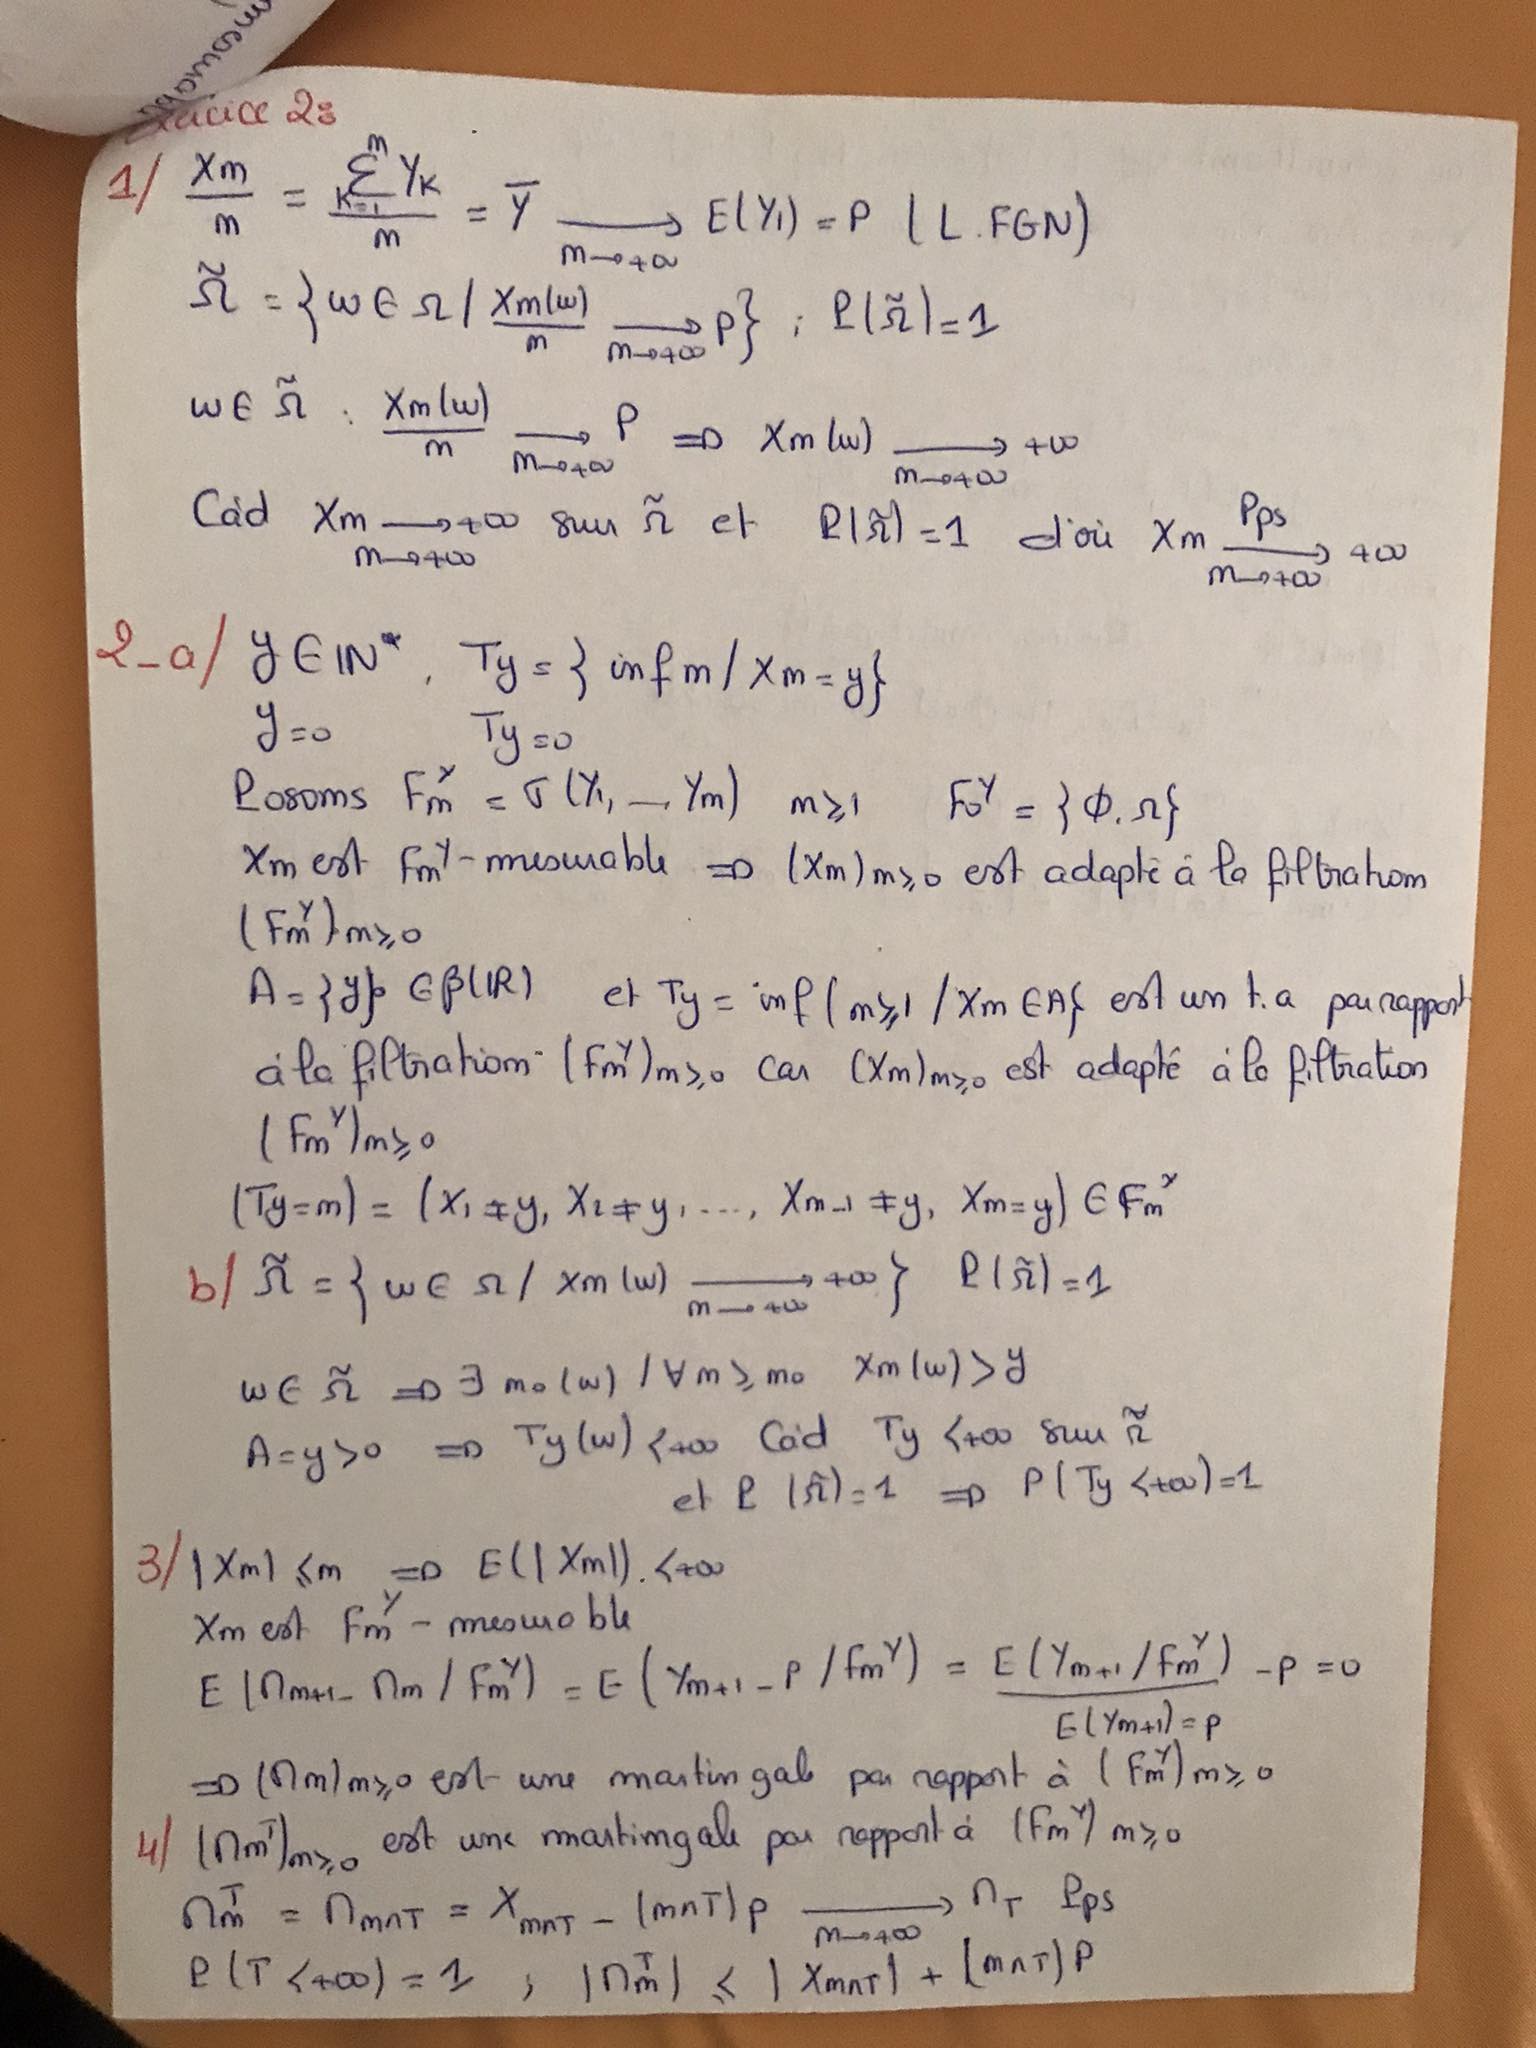 mesurable
Exercice 2:
1/ Xm/m = Σ_{k=1}^{m} Yk / m = Ȳ ⟶_{m→+∞} E(Y1) = P (L.FGN)
Ω̃ = {ω ∈ Ω / Xm(ω)/m ⟶_{m→+∞} P} ; P(Ω̃) = 1
ω ∈ Ω̃ : Xm(ω)/m ⟶_{m→+∞} P ⇒ Xm(ω) ⟶_{m→+∞} +∞
Càd Xm ⟶_{m→+∞} +∞ sur Ω̃ et P(Ω̃) = 1 d'où Xm ⟶^{Pps}_{m→+∞} +∞
2-a/ y ∈ IN*, Ty = { inf m / Xm = y}
y = 0 Ty = 0
Posons Fm^Y = σ(Y1, —, Ym) m ≥ 1 Fo^Y = {∅, Ω}
Xm est Fm^Y - mesurable ⇒ (Xm)m≥0 est adapté à la filtration
(Fm^Y)m≥0
A = {y} ∈ β(IR) et Ty = inf{m ≥ 1 / Xm ∈ A} est un t.a par rapport
à la filtration (Fm^Y)m≥0 car (Xm)m≥0 est adapté à la filtration
(Fm^Y)m≥0
(Ty = m) = (X1 ≠ y, X2 ≠ y, ...., Xm-1 ≠ y, Xm = y) ∈ Fm^Y
b/ Ω̃ = {ω ∈ Ω / Xm(ω) ⟶_{m→+∞} +∞} P(Ω̃) = 1
ω ∈ Ω̃ ⇒ ∃ m0(ω) / ∀ m ≥ m0 Xm(ω) > y
A = y > 0 ⇒ Ty(ω) < +∞ Càd Ty < +∞ sur Ω̃
et P(Ω̃) = 1 ⇒ P(Ty < +∞) = 1
3/ |Xm| ≤ m ⇒ E(|Xm|) < +∞
Xm est Fm^Y - mesurable
E(Mm+1 - Mm / Fm^Y) = E(Ym+1 - P / Fm^Y) = E(Ym+1 / Fm^Y) - P = 0
E(Ym+1) = P
⇒ (Mm)m≥0 est une martingale par rapport à (Fm^Y)m≥0
4/ (Mm^T)m≥0 est une martingale par rapport à (Fm^Y)m≥0
Mm^T = Mm∧T = Xm∧T - (m∧T)P ⟶_{m→+∞} M_T Pps
P(T < +∞) = 1 ; |Mm^T| ≤ |Xm∧T| + (m∧T)P